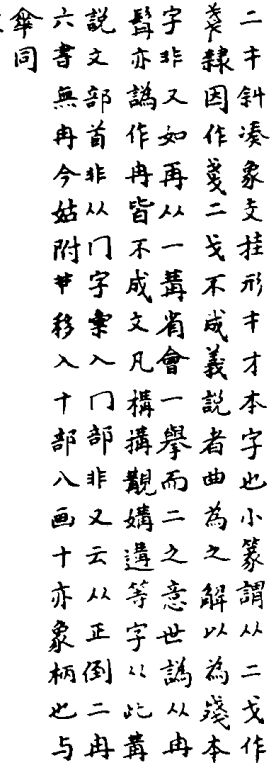 二㐄斜湊象交挂形㐄才本字也小篆謂从二戈作
隸因作戔二戈不成義說者曲為之解以為殘本
字非又如再从一冓省會一舉而二之意世譌从冉
髯亦譌作冉皆不成文凡構搆覯媾遘等字从此冓
說文部首非从冂字彙入冂部非又云从正倒二冉
六書無冉今姑附移入十部八画十亦象柄也与
傘同